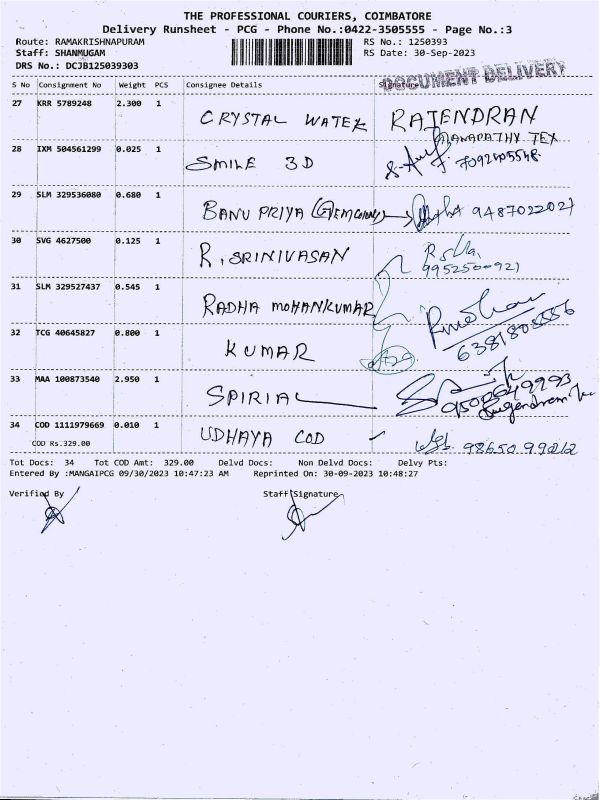 THE PROFESSIONAL COURIERS, COIMBATORE
Delivery Runsheet - PCG - Phone No.:0422-3505555 - Page No.:3
Route: RAMAKRISHNAPURAM
Staff: SHANMUGAM
DRS No.: DCJB125039303
RS No.: 1250393
RS Date: 30-Sep-2023
DOCUMENT DELIVERY
S No Consignment No Weight PCS Consignee Details Signature
27 KRR 5789248 2.300 1 CRYSTAL WATER RAJENDRAN
28 IXM 504561299 0.025 1 SMILE 3D
29 SLM 329536080 0.680 1 BANU PRIYA 9487022021
30 SVG 4627500 0.125 1 R. SRINIVASAN
9952500921
31 SLM 329527437 0.545 1 RADHA MOHANKUMAR
32 TCG 40645827 0.800 1 KUMAR
33 MAA 100873540 2.950 1 SPIRIAL
34 COD 1111979669 0.010 1 UDHAYA COD
COD Rs.329.00
Tot Docs: 34 Tot COD Amt: 329.00 Delvd Docs: Non Delvd Docs: Delvy Pts:
Entered By :MANGAIPCG 09/30/2023 10:47:23 AM Reprinted On: 30-09-2023 10:48:27
Verified By Staff Signature